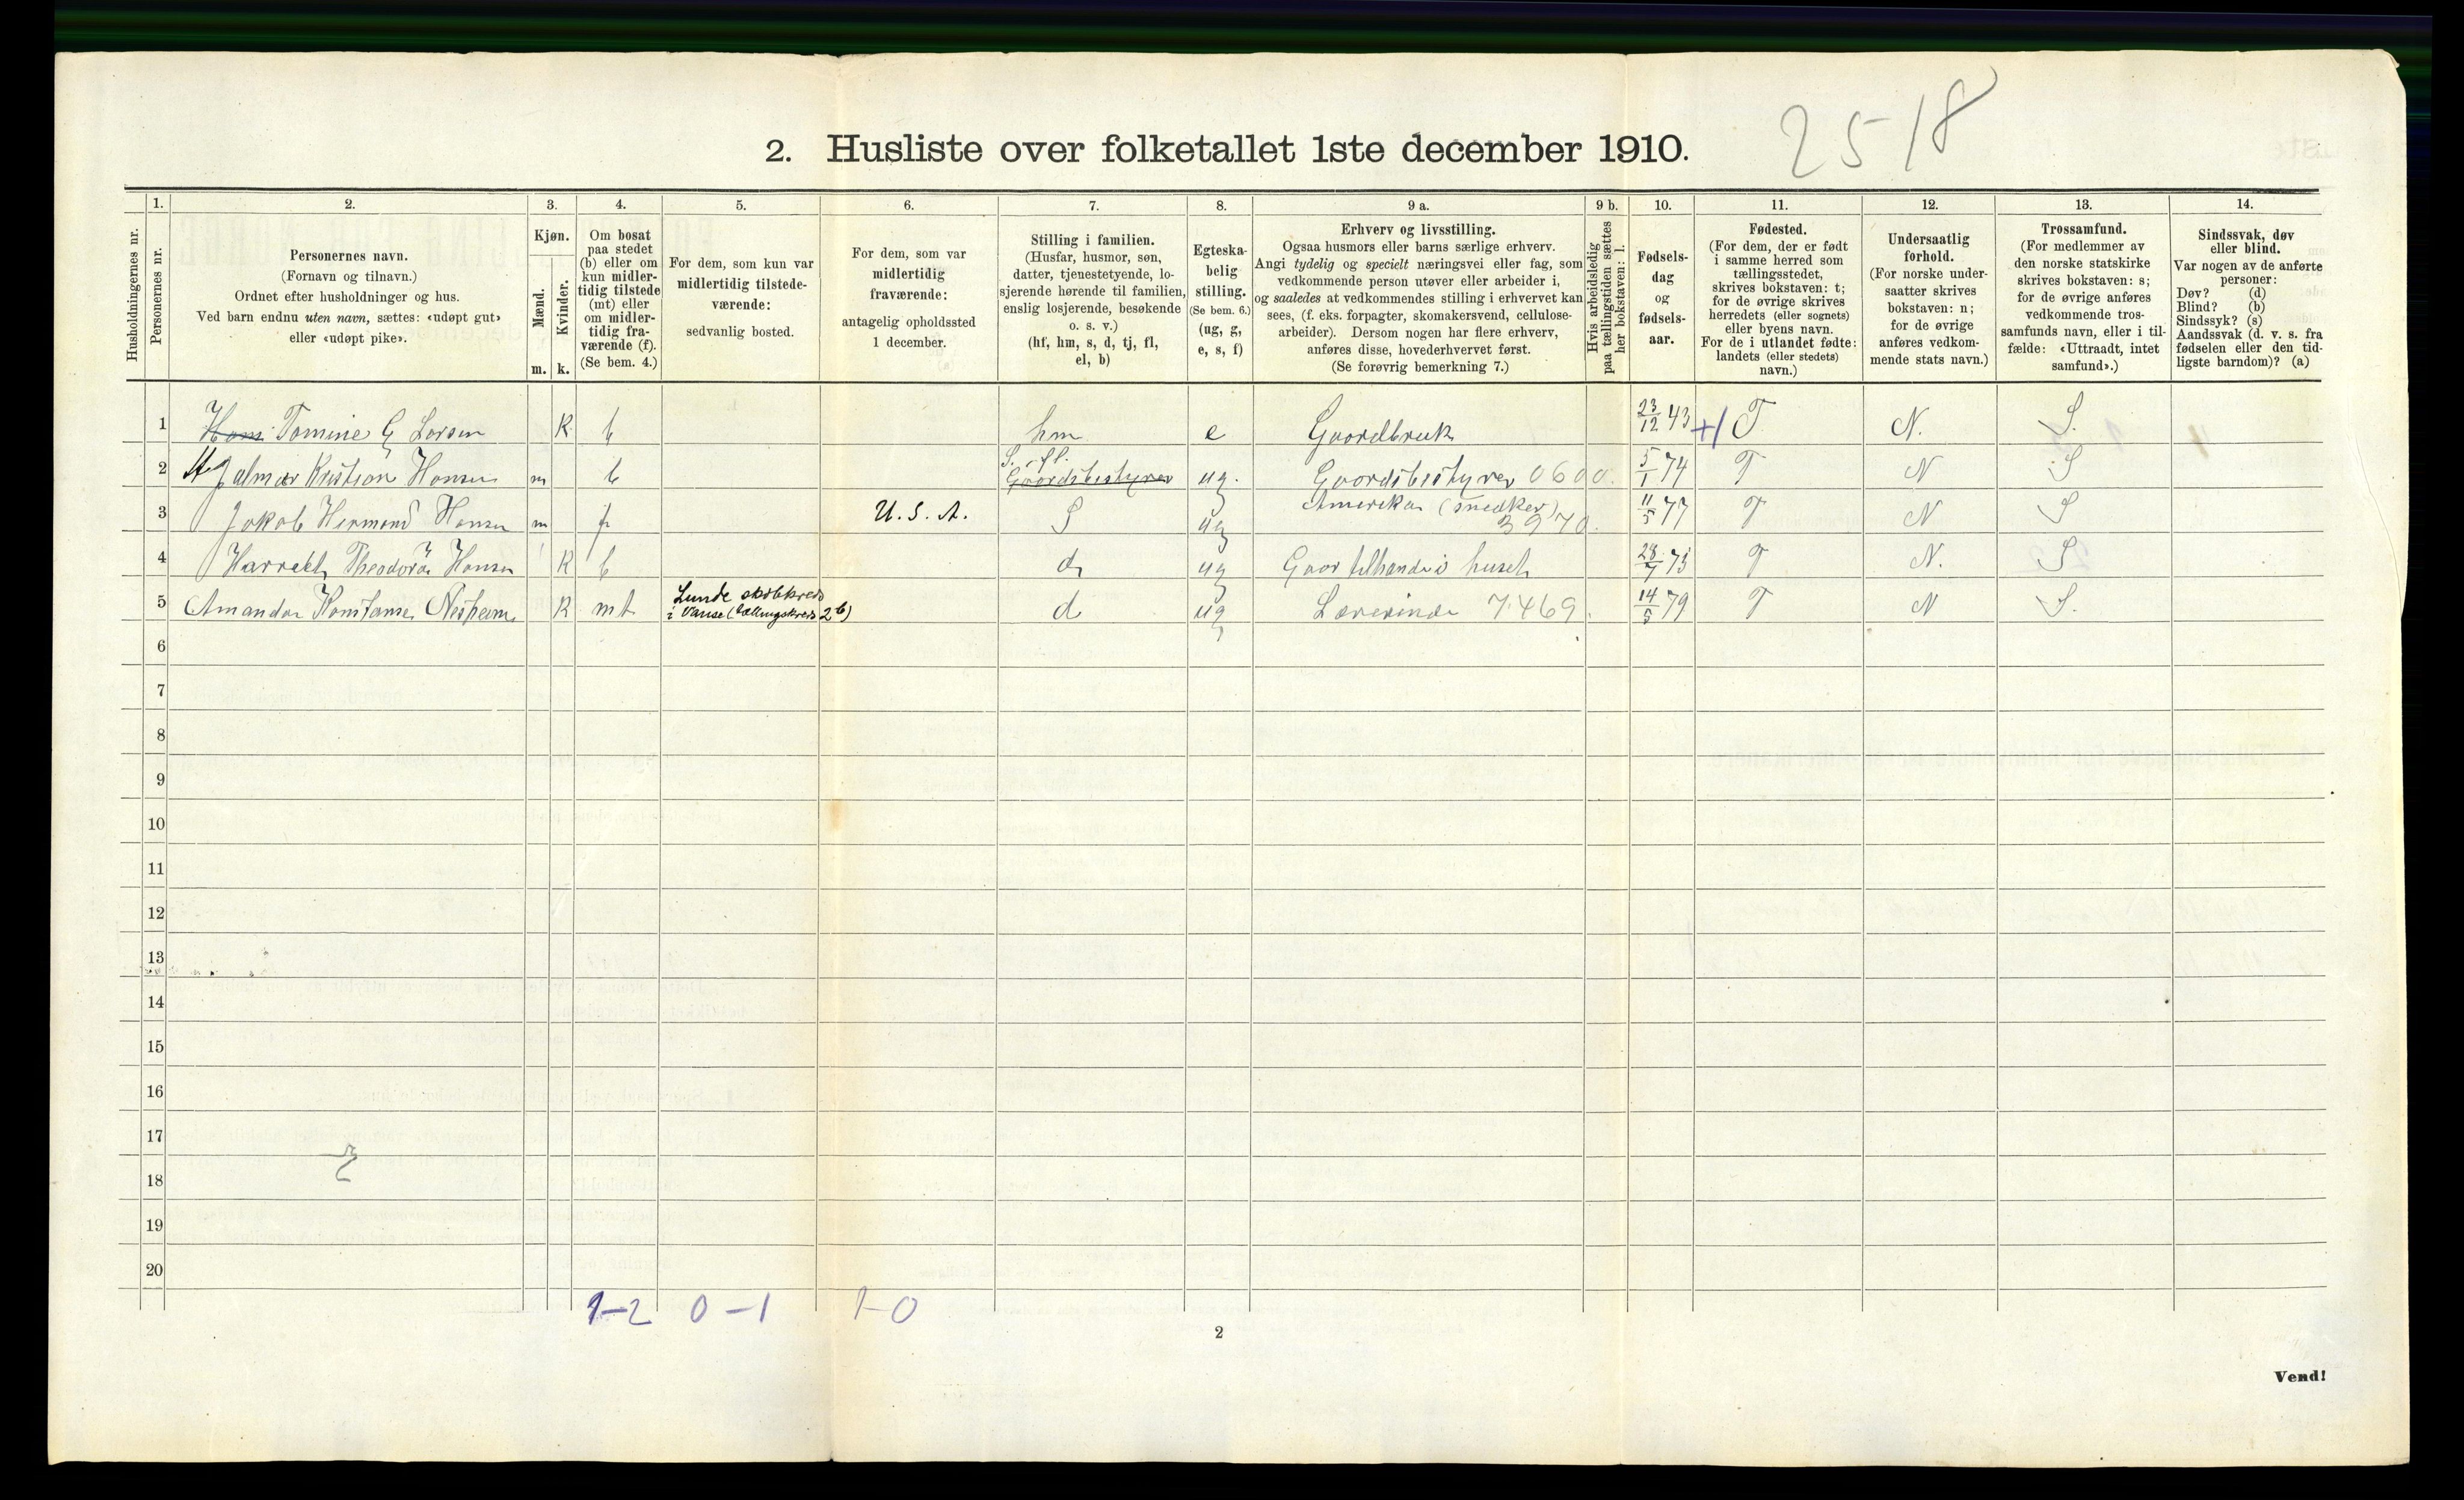 25 18
2. Husliste over folketallet 1ste december 1910.
Husholdningernes nr.
1.
Personernes nr.
2.
Personernes navn.
(Fornavn og tilnavn.)
Ordnet efter husholdninger og hus.
Ved barn endnu uten navn, sættes: «udøpt gut»
eller «udøpt pike».
3.
Kjøn.
Mænd.
Kvinder.
m. k.
4.
Om bosat
paa stedet
(b) eller om
kun midler-
tidig tilstede
(mt) eller
om midler-
tidig fra-
værende (f).
(Se bem. 4.)
5.
For dem, som kun var
midlertidig tilstede-
værende:
sedvanlig bosted.
6.
For dem, som var
midlertidig
fraværende:
antagelig opholdssted
1 december.
7.
Stilling i familien.
(Husfar, husmor, søn,
datter, tjenestetyende, lo-
sjerende hørende til familien,
enslig losjerende, besøkende
o. s. v.)
(hf, hm, s, d, tj, fl,
el, b)
8.
Egteska-
belig
stilling.
(Se bem. 6.)
(ug, g,
e, s, f)
9 a.
Erhverv og livsstilling.
Ogsaa husmors eller barns særlige erhverv.
Angi tydelig og specielt næringsvei eller fag, som
vedkommende person utøver eller arbeider i,
og saaledes at vedkommendes stilling i erhvervet kan
sees, (f. eks. forpagter, skomakersvend, cellulose-
arbeider). Dersom nogen har flere erhverv,
anføres disse, hovederhvervet først.
(Se forøvrig bemerkning 7.)
9 b.
Hvis arbeidsledig
paa tællingstiden sættes
her bokstaven: l.
10.
Fødsels-
dag
og
fødsels-
aar.
11.
Fødested.
(For dem, der er født
i samme herred som
tællingsstedet,
skrives bokstaven: t;
for de øvrige skrives
herredets (eller sognets)
eller byens navn.
For de i utlandet fødte:
landets (eller stedets)
navn.)
12.
Undersaatlig
forhold.
(For norske under-
saatter skrives
bokstaven: n;
for de øvrige
anføres vedkom-
mende stats navn.)
13.
Trossamfund.
(For medlemmer av
den norske statskirke
skrives bokstaven: s;
for de øvrige anføres
vedkommende tros-
samfunds navn, eller i til-
fælde: «Uttraadt, intet
samfund».)
14.
Sindssvak, døv
eller blind.
Var nogen av de anførte
personer:
Døv? (d)
Blind? (b)
Sindssyk? (s)
Aandssvak (d. v. s. fra
fødselen eller den tid-
ligste barndom)? (a)
1 Hans Tomine G Larsen K b hm e Gaardbruk 23/12 43 +/ T N. S.
2 Hjalmar Kristian Hansen m b S. fl. Gaardsbestyrer ug. Gaardsbestyrer 0600. 5/1 74 T N S
3 Jakob Hermand Hansen m f U. S. A. S ug Amerika (snedker) 3970. 11/5 77 T N S
4 Theodora Hansen K b d ug Gaar tilhande i huset 28/7 73 T N. S
5 Amanda Konstanse K mt Lunde skolekreds
i Vanse (Tællingskreds 2b) d ug Lærerinde 7469. 14/5 79 T N S.
6
7
8
9
10
11
12
13
14
15
16
17
18
19
20
1-2 0-1 1-0
2
Vend!